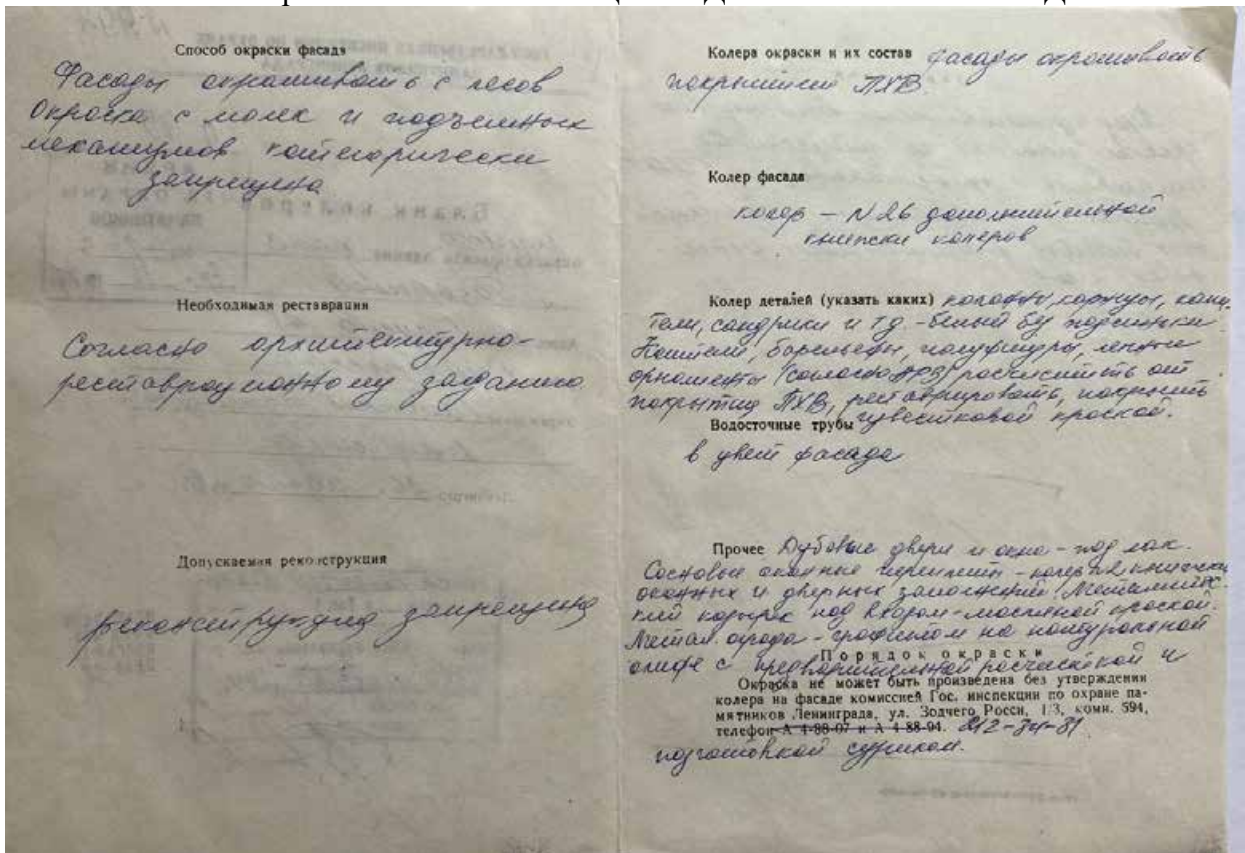 Способ окраски фасада
Фасады окрашивать с лесов
Окраска с люлек и подъемных
механизмов категорически
запрещена
Необходимая реставрация
Согласно архитектурно-
реставрационному заданию
Допускаемая реконструкция
реконструкция запрещена
Колера окраски и их состав фасады окрашивать
покрытием ПХВ.
Колер фасада
колер – N 26 дополнительной
книжки колеров
Колер деталей (указать каких) колонны, карнизы,
тели, сандрики и тд - белый без подсинки.
Капители, барельефы, полуфигуры, лепные
орнаменты (согласно АРЗ) расчистить от
покрытия ПХВ, реставрировать, покрыть
известковой краской.
Водосточные трубы
в цвет фасада
Прочее Дубовые двери и окна - под лак.
Сосновые оконные переплеты - колер книжки
оконных и дверных заполнений. Металличес-
кий козырек над входом - масляной краской.
Метал. ограда - графитом на натуральной
олифе с предварительной расчисткой и
Порядок окраски
Окраска не может быть произведена без утверждения
колера на фасаде комиссией Гос. инспекции по охране па-
мятников Ленинграда, ул. Зодчего Росси, 1/3, комн. 594,
телефон А 4-88-07 и А 4-88-94. 212-34-31
подготовкой суриком.